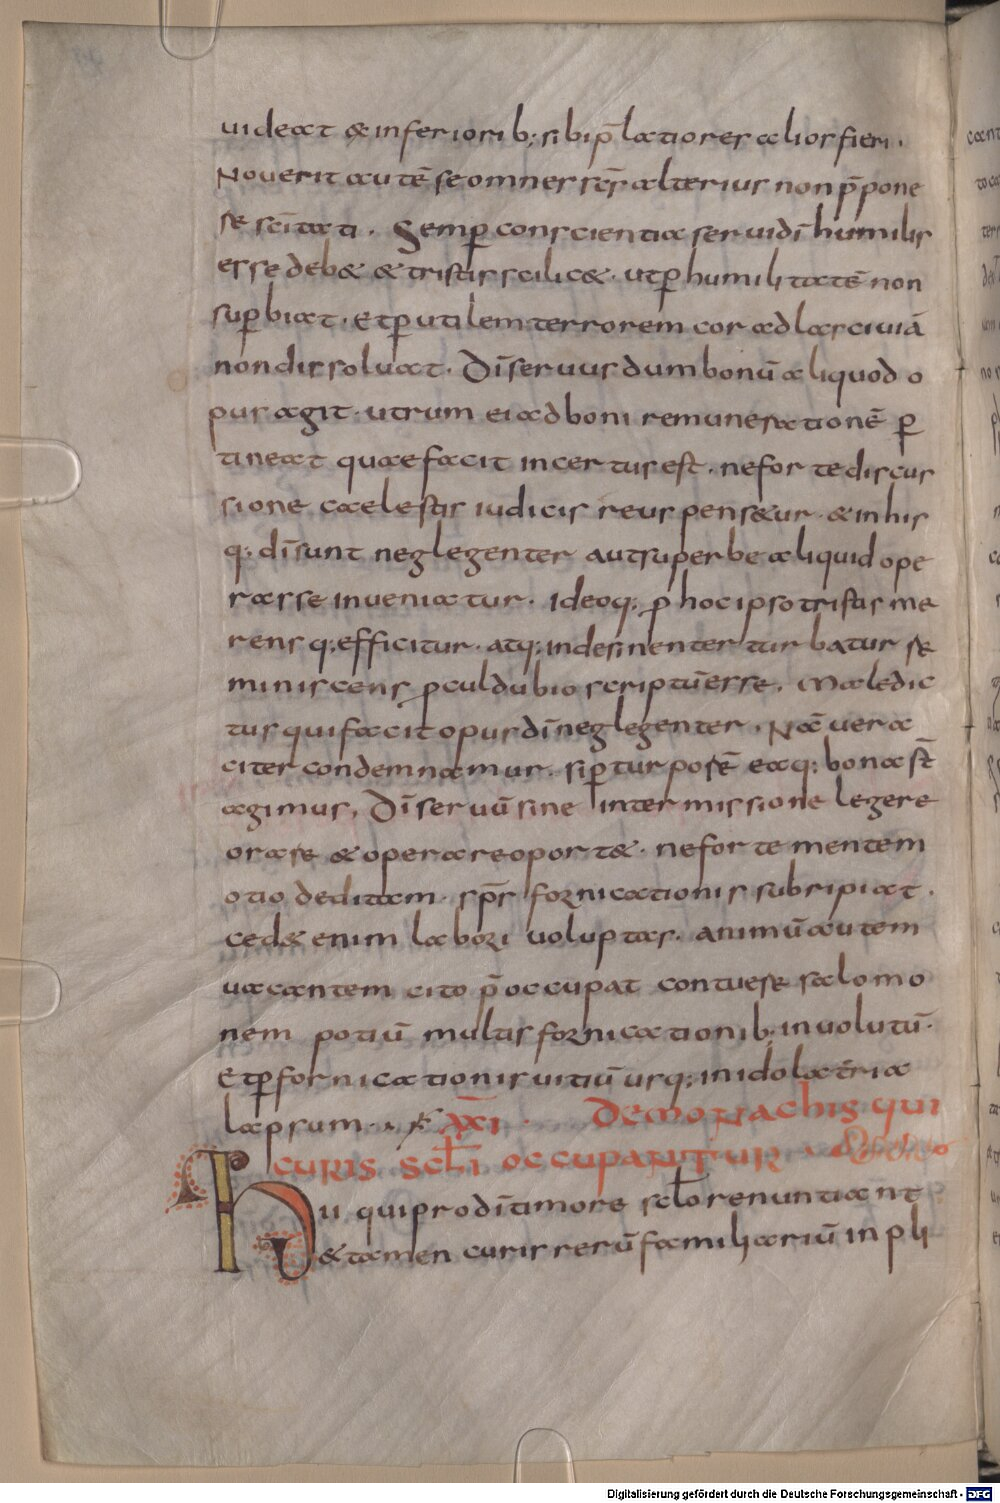 uideat & inferiorib; sibi p̄latiores alios fieri.
Nouerit autē se omnes sc̄s alterius non p̄pone
re sc̄itati. Semp̲ conscientia serui dī humilis
esse deb& & tristis scilic&. ut p̲ humilitatē non
sup̲biat. Et p̲ utilem terrorem cor ad lasciuiā
non dissoluat. Dī seruus dum bonū aliquod o
pus agit. utrum ei ad boni remunerationē p̲
tineat quae facit incertus est. ne forte discus
sione caelestis iudicis reus pens&ur. & in his
q; dī sunt neglegenter aut superbe aliquid ope
rasse inueniatur. Ideoq; p̲ hoc ipso tristis me
rens q; efficitur. atq; indesinenter turbatur re
miniscens p̲culdubio scriptū esse. Maledic
tus qui facit opus dī neglegenter. Nā uera
citer condemnamur. si p̲ turporē eaq; bona st̄
agimus. Dī seruū sine intermissione legere
orare & operare oport&. ne forte mentem
otio deditam. sp̄s fornicationis subripiat.
ced& enim labori uoluptas. animū autem
uacantem cito p̄occupat contuere salomo
nem potiū multis fornicationib; inuolutū.
Et p̲ fornicationis uitiū usq; in idolatriae
lapsum. XXI. De monachis qui
curis sc̄li occupantur
Hu qui pro dī timore sc̄lo renuntiant
& tamen curis rerū familiariū inpli
Digitalisierung gefördert durch die Deutsche Forschungsgemeinschaft - DFG